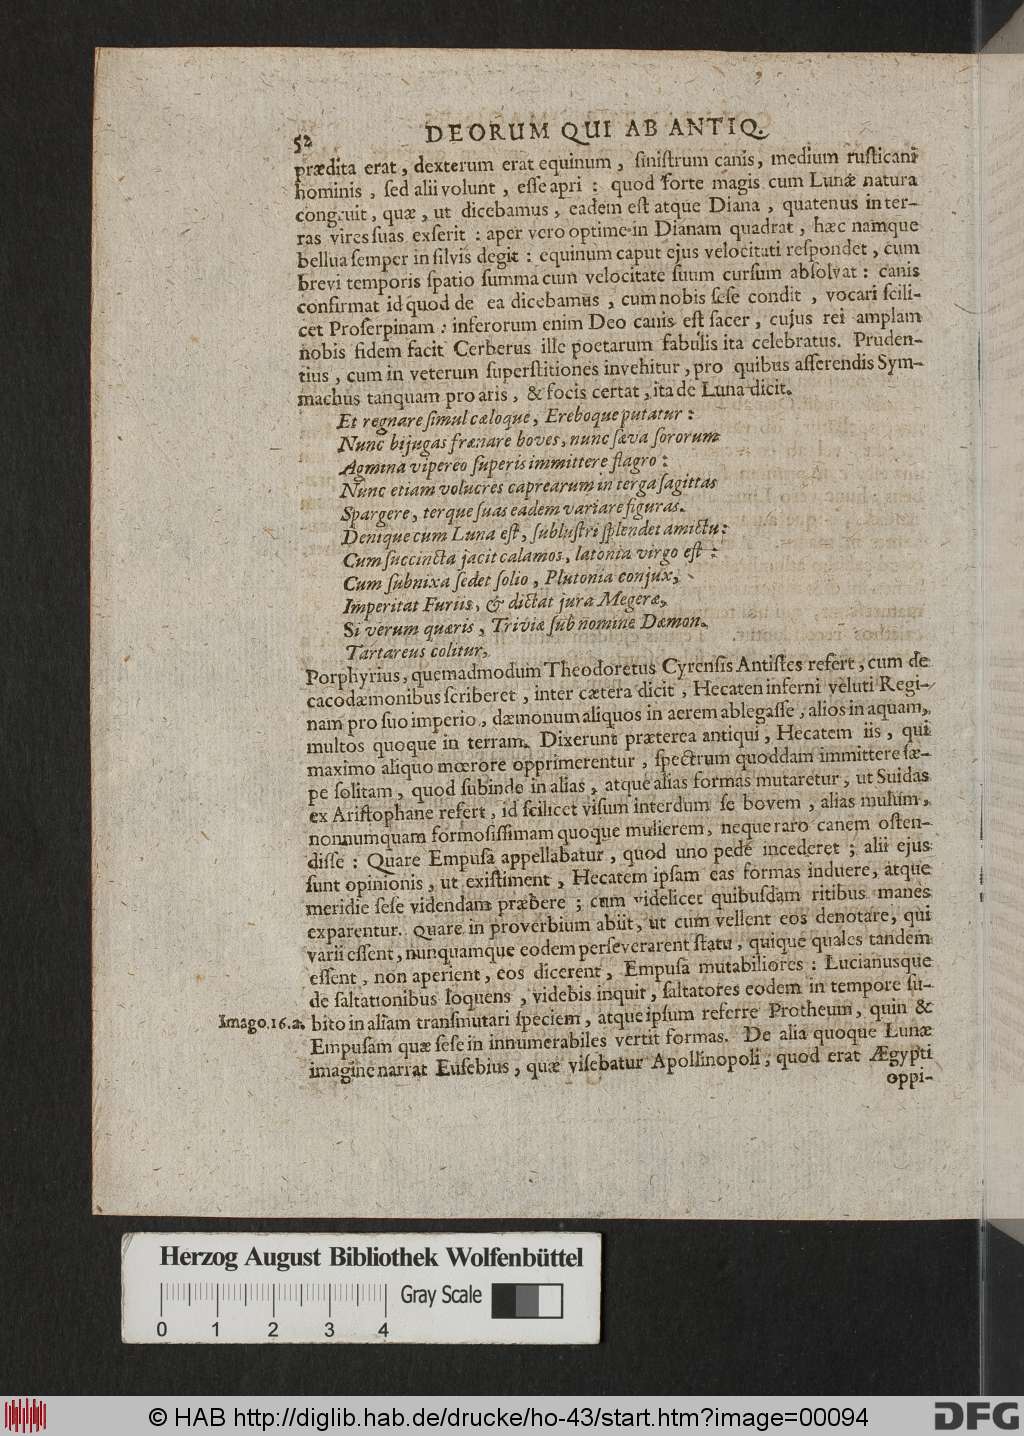 52
DEORUM QUI AB ANTIQ.
prædita erat, dexterum erat equinum, ſiniſtrum canis, medium ruſticani
hominis, ſed alii volunt, eſſe apri: quod forte magis cum Lunæ natura
congruit, quæ, ut dicebamus, eadem eſt atque Diana, quatenus in ter-
ras vires ſuas exſerit: aper vero optime in Dianam quadrat, hæc namque
bellua ſemper in ſilvis degit: equinum caput ejus velocitati reſpondet, cum
brevi temporis ſpatio ſumma cum velocitate ſuum curſum abſolvat: canis
confirmat id quod de ea dicebamus, cum nobis ſeſe condit, vocari ſcili-
cet Proſerpinam: inferorum enim Deo canis eſt ſacer, cujus rei amplam
nobis fidem facit Cerberus ille poetarum fabulis ita celebratus. Pruden-
tius, cum in veterum ſuperſtitiones invehitur, pro quibus aſſerendis Sym-
machus tanquam pro aris, & focis certat, ita de Luna dicit.
Et regnare ſimul cæloque, Ereboque putatur:
Nunc bijugas frænare boves, nunc ſæva ſororum
Agmina vipereo ſuperis immittere flagro:
Nunc etiam volucres caprearum in terga ſagittas
Spargere, terque ſuas eadem variare figuras.
Denique cum Luna eſt, ſubluſtri ſplendet amictu:
Cum ſuccincta jacit calamos, latonia virgo eſt:
Cum ſubnixa ſedet ſolio, Plutonia conjux,
Imperitat Furiis, & dictat jura Megeræ,
Si verum quæris, Triviæ ſub nomine Dæmon
Tartareus colitur,
Porphyrius, quemadmodum Theodoretus Cyrenſis Antiſtes refert, cum de
cacodæmonibus ſcriberet, inter cætera dicit, Hecaten inferni veluti Regi-
nam pro ſuo imperio, dæmonum aliquos in aerem ablegaſſe, alios in aquam,
multos quoque in terram. Dixerunt præterea antiqui, Hecatem iis, qui
maximo aliquo mœrore opprimerentur, ſpectrum quoddam immittere ſæ-
pe ſolitam, quod ſubinde in alias, atque alias formas mutaretur, ut Suidas
ex Ariſtophane refert, id ſcilicet viſum interdum ſe bovem, alias mulum,
nonnumquam formoſiſſimam quoque mulierem, neque raro canem oſten-
diſſe: Quare Empuſa appellabatur, quod uno pede incederet; alii ejus
ſunt opinionis, ut exiſtiment, Hecatem ipſam eas formas induere, atque
meridie ſeſe videndam præbere; cum videlicet quibuſdam ritibus manes
exparentur. Quare in proverbium abiit, ut cum vellent eos denotare, qui
varii eſſent, nunquamque eodem perſeverarent ſtatu, quique quales tandem
eſſent, non aperient, eos dicerent, Empuſa mutabiliores: Lucianusque
de ſaltationibus loquens, videbis inquit, ſaltatores eodem in tempore ſu-
Imago. 16. a. bito in aliam tranſmutari ſpeciem, atque ipſum referre Protheum, quin &
Empuſam quæ ſeſe in innumerabiles vertit formas. De alia quoque Lunæ
imagine narrat Euſebius, quæ viſebatur Apollinopoli, quod erat Ægypti
oppi-
Herzog August Bibliothek Wolfenbüttel
Gray Scale
0 1 2 3 4
© HAB http://diglib.hab.de/drucke/ho-43/start.htm?image=00094
DFG